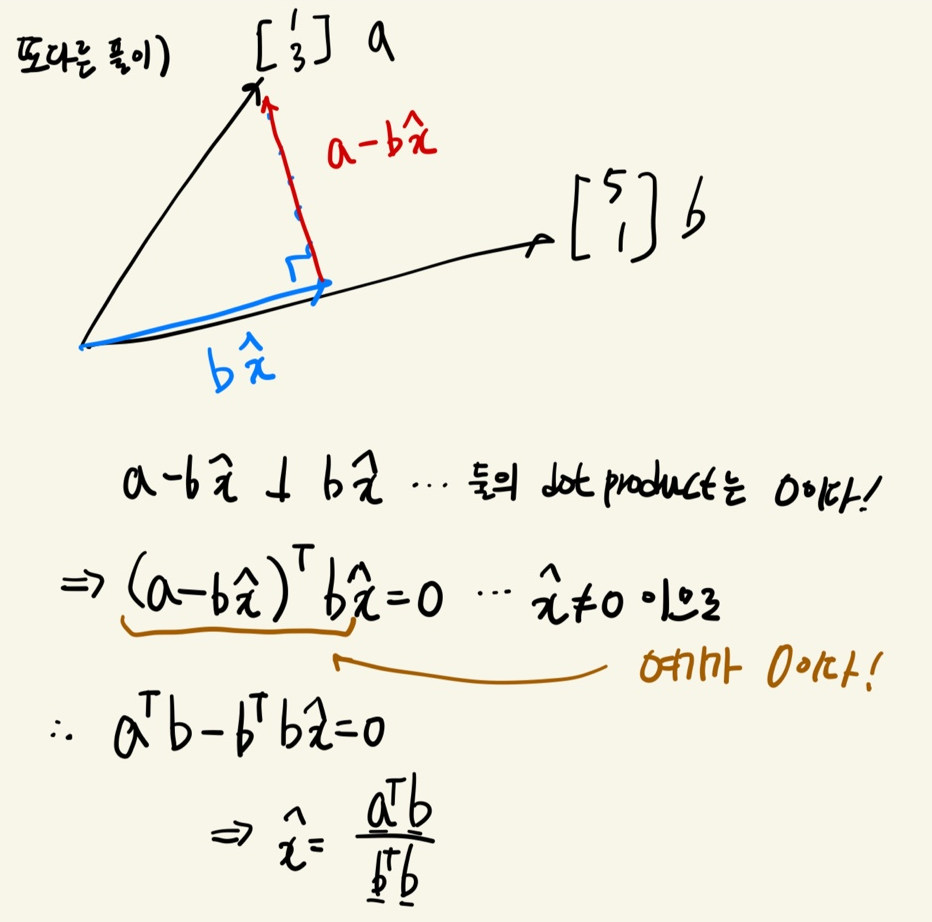 또다른 풀이) [1 3] a
a-bx̂
[5 1] b
bx̂
a-bx̂ ⊥ bx̂ ... 둘의 dot product는 0이다!
⇒ (a-bx̂)ᵀbx̂=0 ... x̂≠0 이므로
여기가 0이다!
∴ aᵀb-bᵀbx̂=0
⇒ x̂= aᵀb / bᵀb